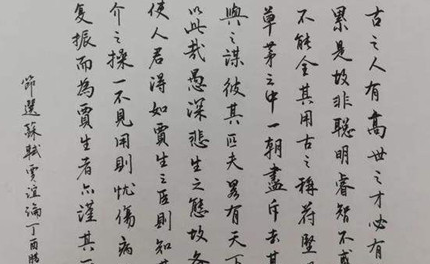 古之人有高世之才必有
累是故非聰明睿智不
不能全其用古之稱苻堅
草茅之中一朝盡斥去其
與之謀彼其匹夫畧有天下
以此哉愚深悲生之態故
使人君得如賈生之臣則知其
介之操一不見用則忧傷病
复振而為賈生者亦謹其
節選蘇軾賈誼論丁酉腊